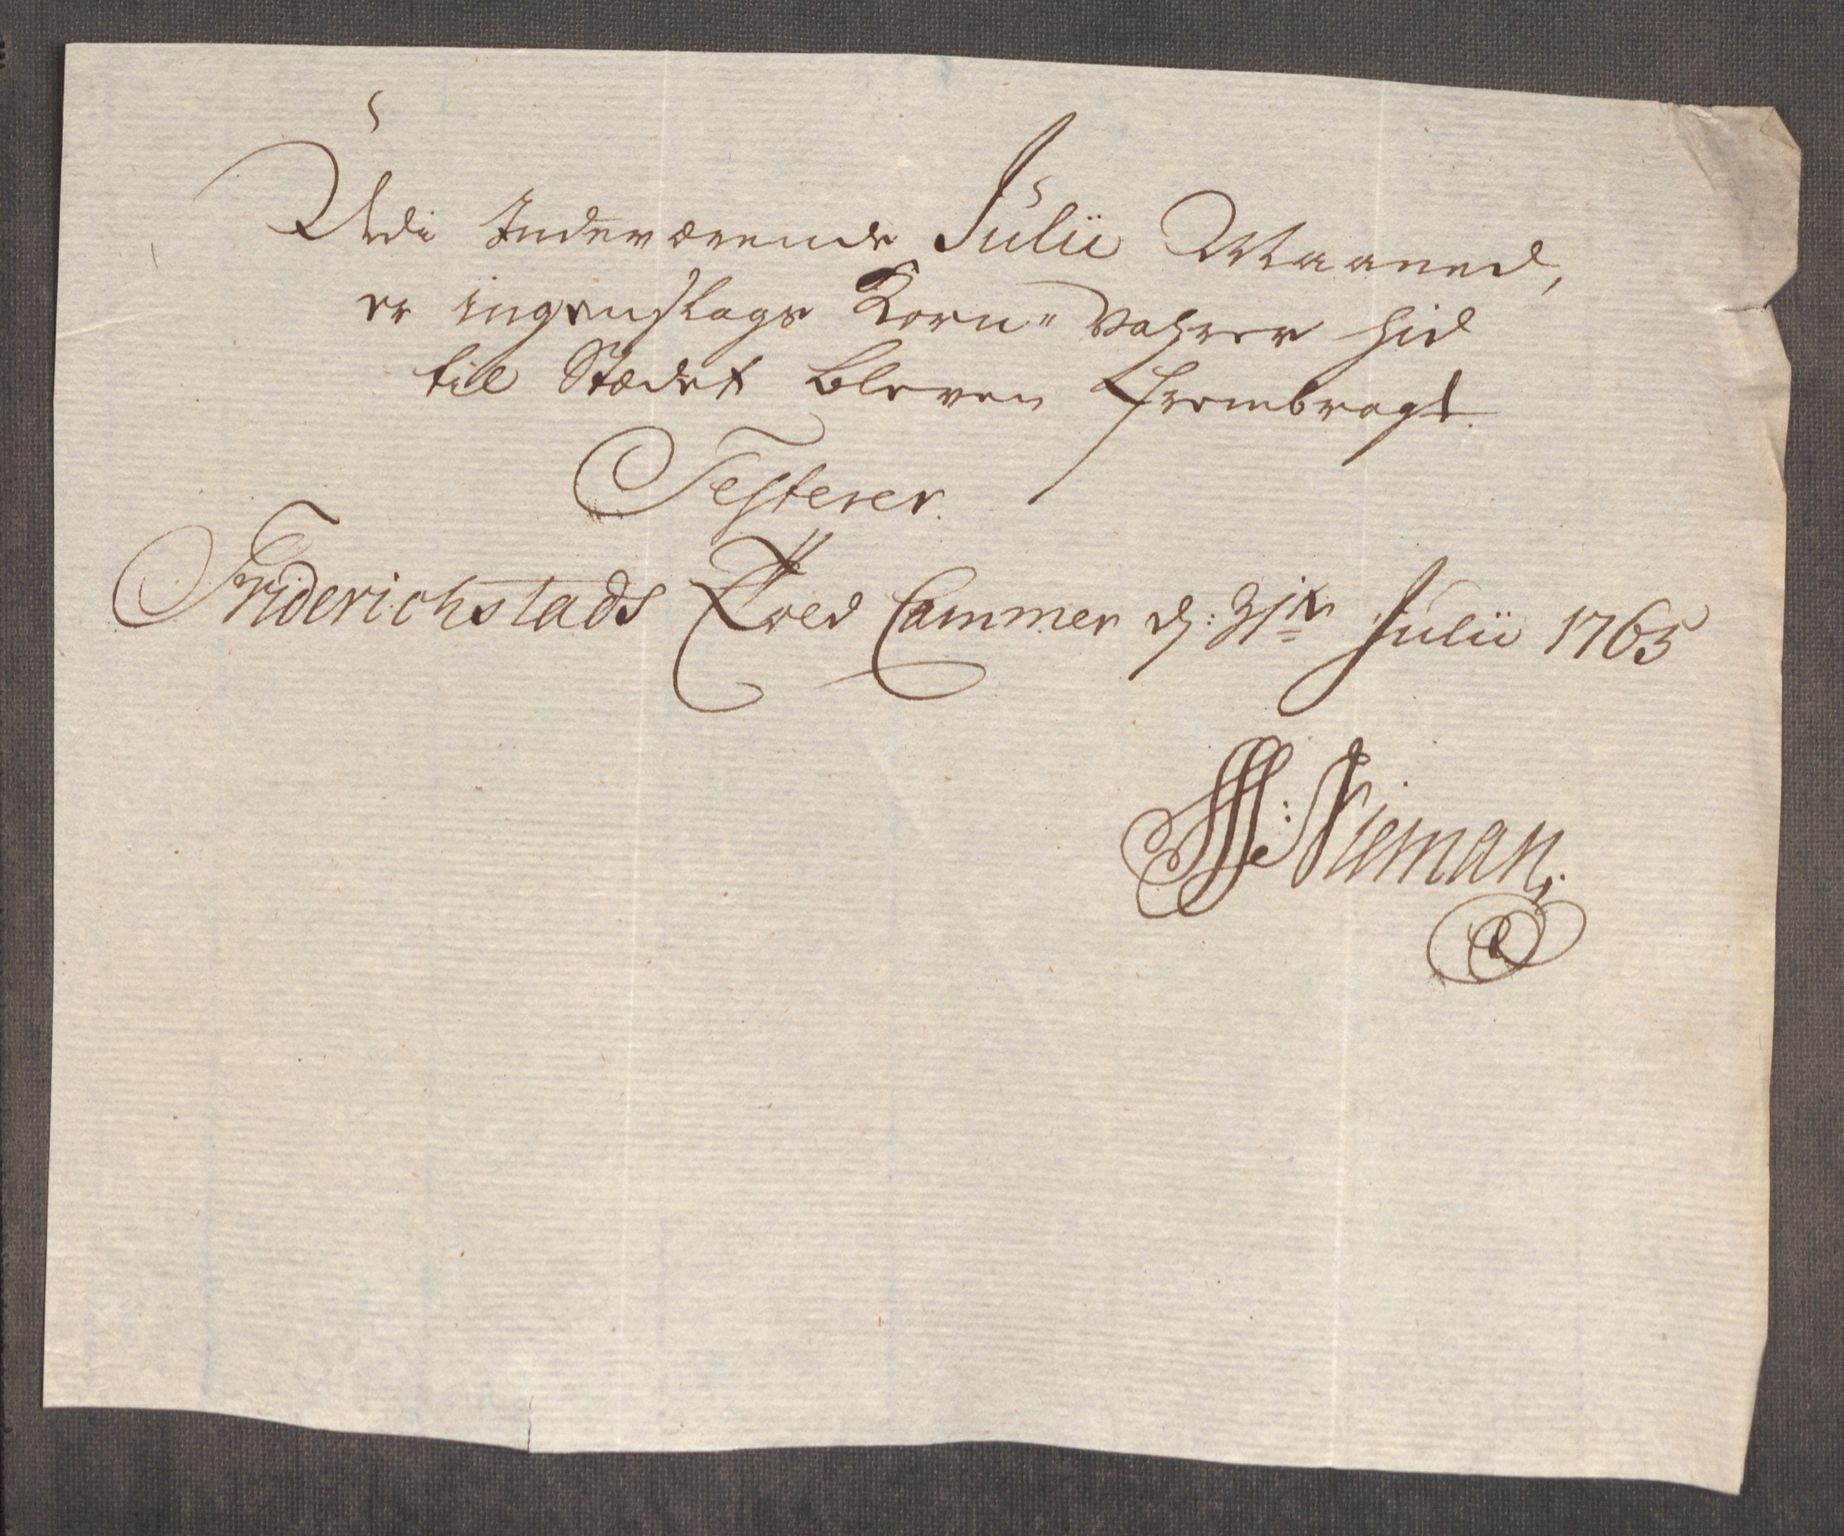 Udi Indeværende Julii Maaned,
er ingenslags Korn= Vahrer hid
til Stædet bleven frembragt.
Testerer.
Friderichstads Toed Cammer d: 31te Julii 1765
Nieman.